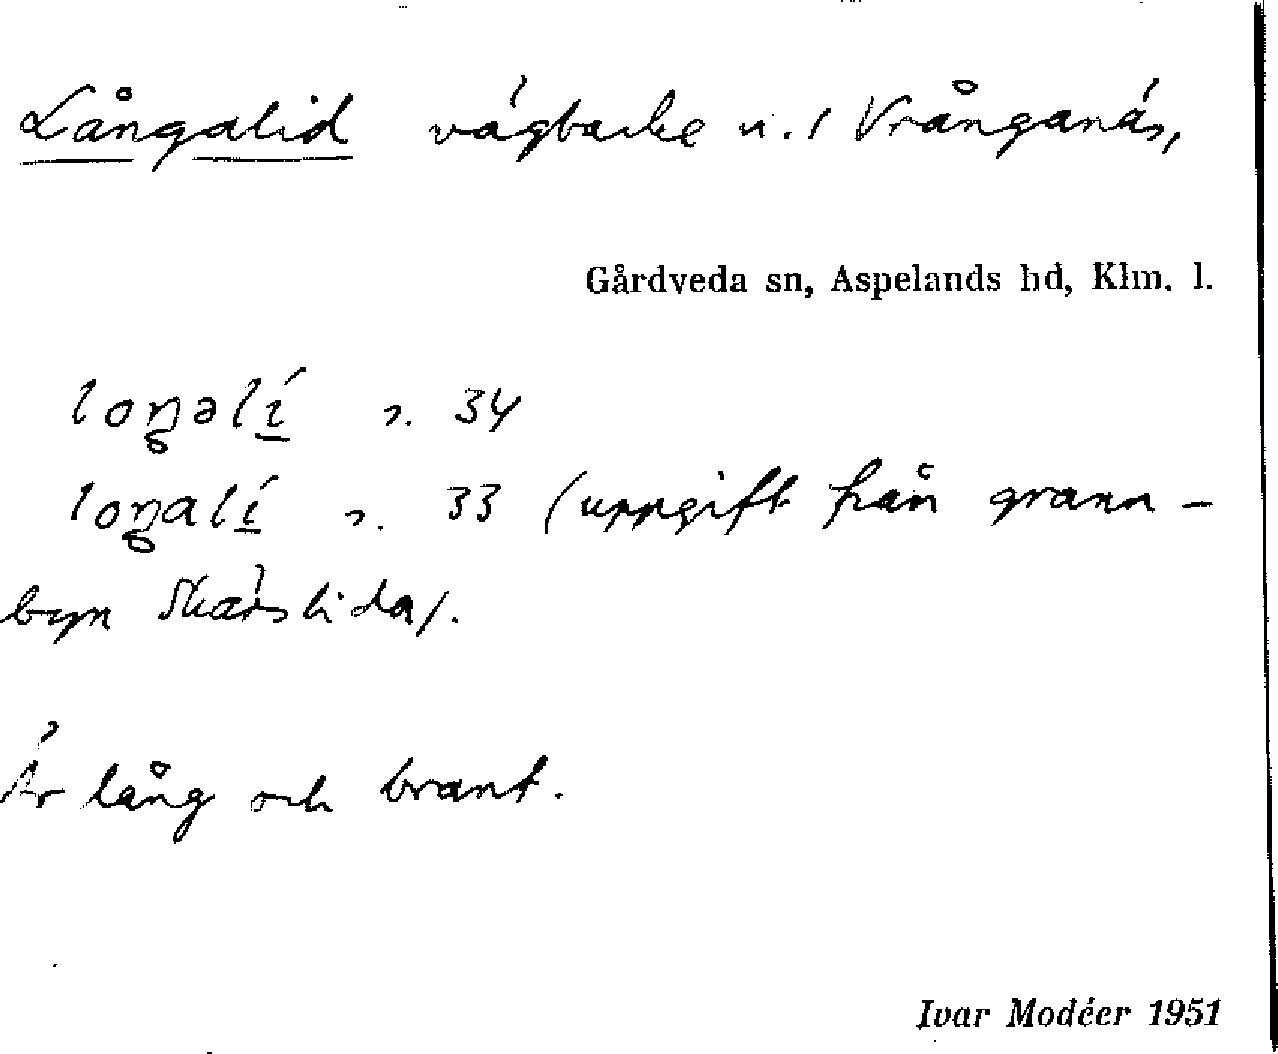 Långalid vägbacke u. / Vrånganäs,
Gårdveda sn, Aspelands hd, Klm. l.
loŋəlí s. 34
loŋalí s. 33 (uppgift från grann-
byn Skärslida/.
Är lång och brant.
Ivar Modéer 1951